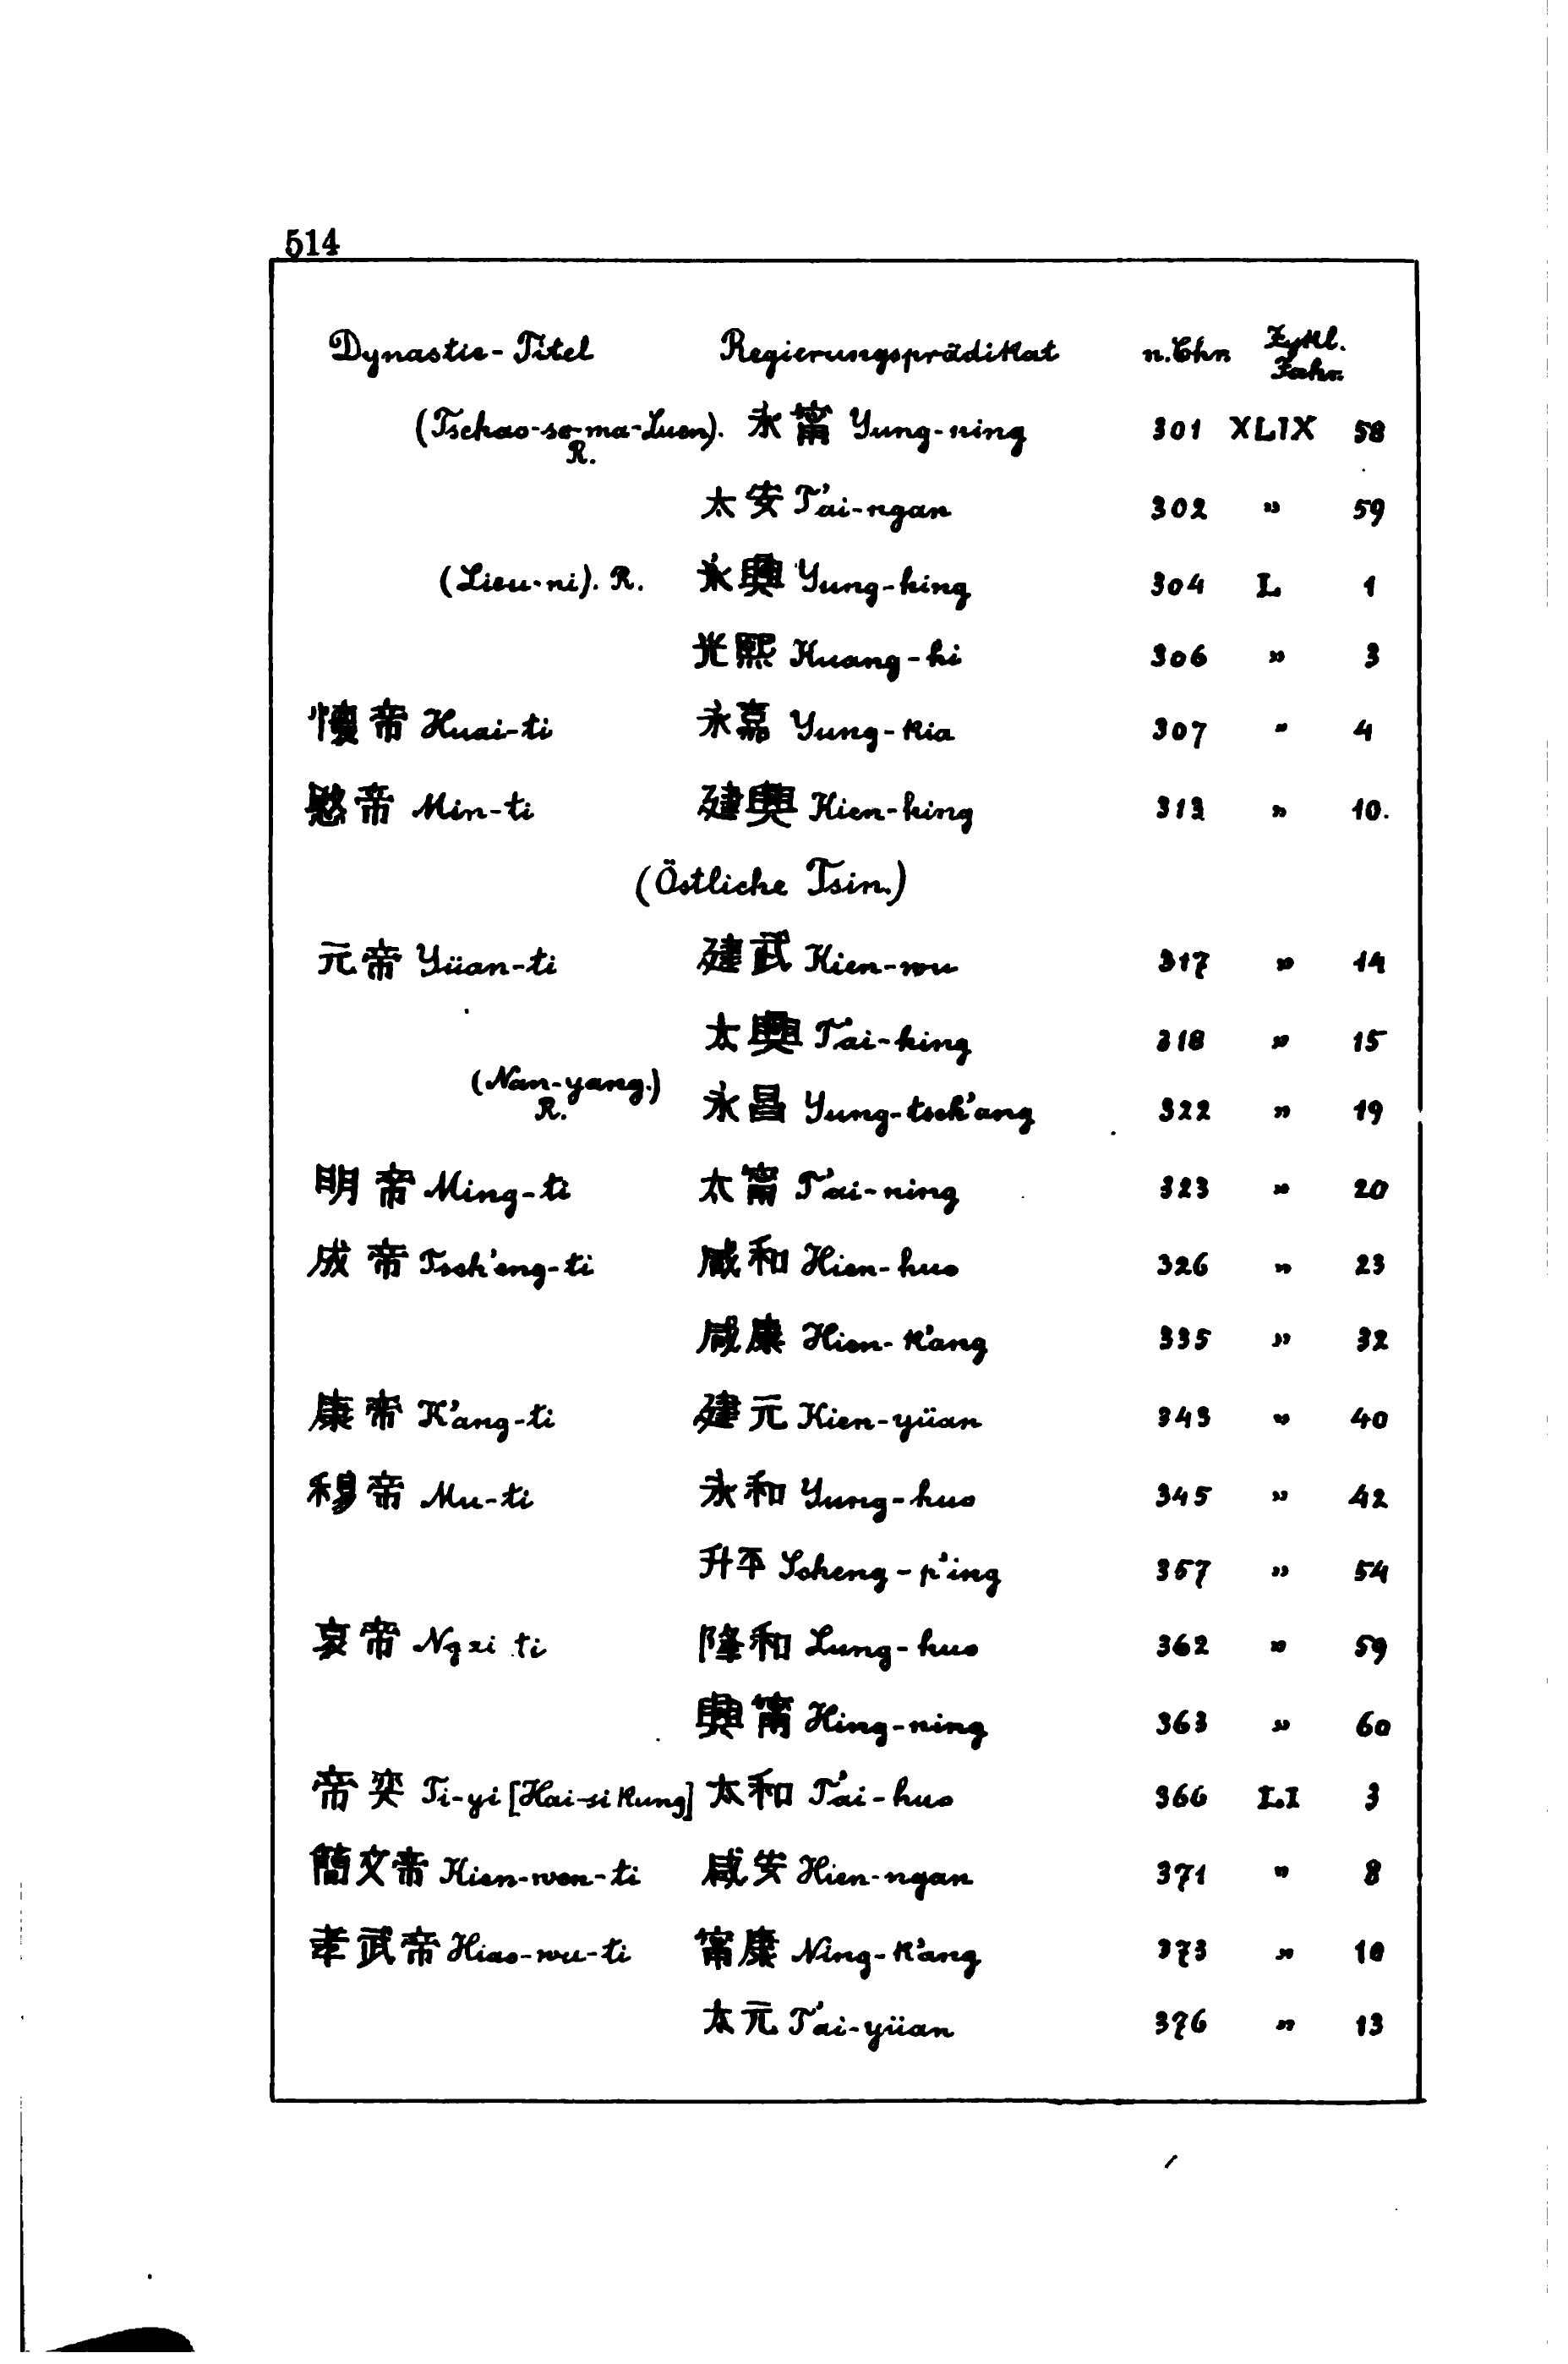 514
Dynastie-Titel Regierungsprädikat n. Chr. Zykl. Jahr.
(Tschao-se-ma-Luen). R. 永甯 Yung-ning 301 XLIX 58
太安 T'ai-ngan 302 " 59
(Lieu-ni). R. 永興 Yung-hing 304 L 1
光熙 Kuang-hi 306 " 3
懷帝 Huai-ti 永嘉 Yung-kia 307 " 4
愍帝 Min-ti 建興 Kien-hing 313 " 10.
(Östliche Tsin.)
元帝 Yüan-ti 建武 Kien-wu 317 " 14
太興 T'ai-hing 318 " 15
(Nan-yang.) R. 永昌 Yung-tsch'ang 322 " 19
明帝 Ming-ti 太甯 T'ai-ning 323 " 20
成帝 Tsch'eng-ti 咸和 Hien-huo 326 " 23
咸康 Hien-k'ang 335 " 32
康帝 K'ang-ti 建元 Kien-yüan 343 " 40
穆帝 Mu-ti 永和 Yung-huo 345 " 42
升平 Scheng-p'ing 357 " 54
哀帝 Ngai ti 隆和 Lung-huo 362 " 59
興甯 Hing-ning 363 " 60
帝奕 Ti-yi [Hai-si kung] 太和 T'ai-huo 366 LI 3
簡文帝 Kien-wen-ti 咸安 Hien-ngan 371 " 8
孝武帝 Hiao-wu-ti 甯康 Ning-k'ang 373 " 10
太元 T'ai-yüan 376 " 13